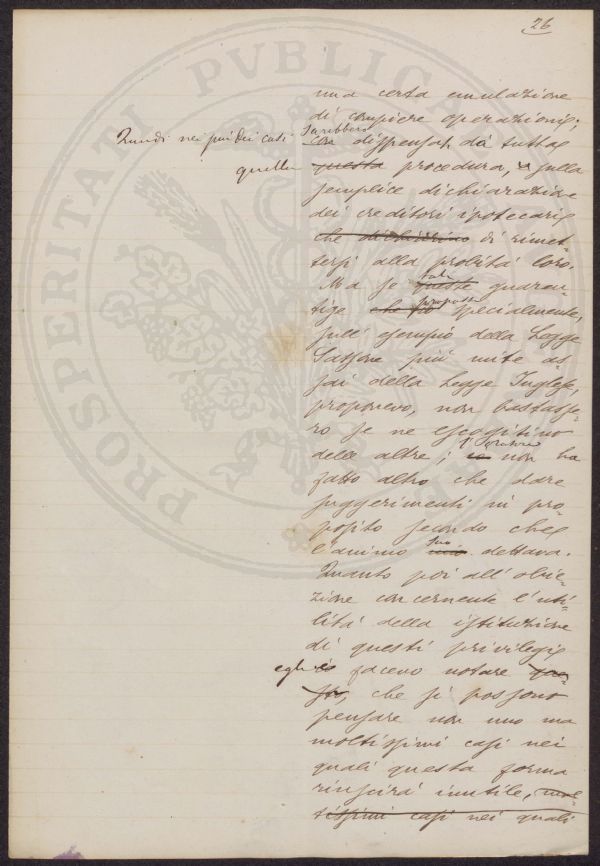 26
una certa emulazione
di compiere operazioni;
Quindi nei più dei casi sarebbero
con dispensati da tutta
quella questa procedura, e sulla
semplice dichiarazione
dei creditori ipotecari
che dichiarino di rimet-
tersi alla probità loro.
Ma se tali queste guaren-
tige che io proposte specialmente,
sull' esempio della Legge
Sassone più mite as-
sai della Legge Inglese,
proponevo, non bastasse-
ro se ne escogitino
delle altre; l'oratore io non ha
fatto altro che dare
suggerimenti in pro-
posito secondo che
l'animo suo mio dettava.
Quanto poi all' obie-
zione concernente l'uti-
lità della istituzione
di questi privilegi
egli io facevo notare que-
sto, che si possono
pensare non uno ma
moltissimi casi nei
quali questa forma
riuscirà inutile, mol-
tissimi casi nei quali
PROSPERITATI PVBLICAE